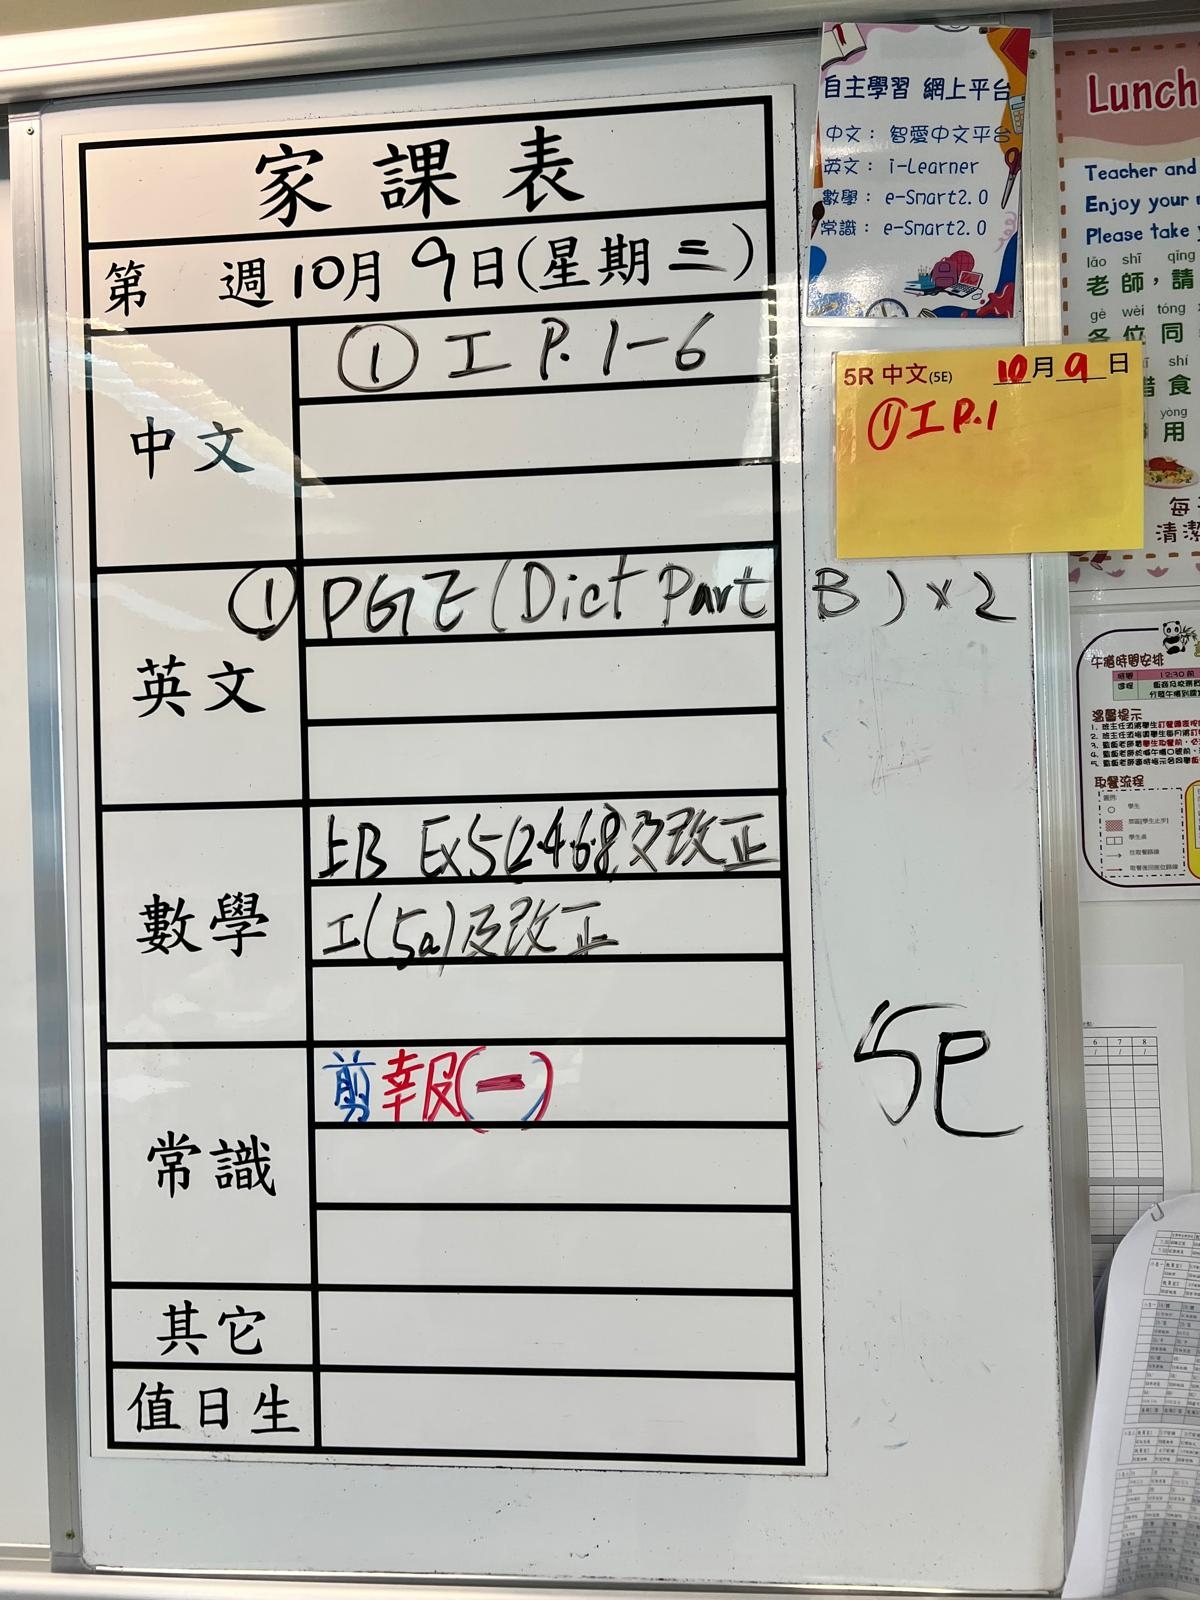 家課表
第 週10月9日(星期三)
中文
① 工 P.1-6
英文
① PGE (Dict Part B) x2
數學
上B Ex5(2.4.6.8)及改正
工(5a)及改正
常識
剪報(一)
其它
值日生
5E
自主學習 網上平台
中文: 智愛中文平台
英文: i-Learner
數學: e-Smart2.0
常識: e-Smart2.0
5R 中文(5E) 10月9日
①工 P.1
Lunch
Teacher and
Enjoy your
Please take
lǎo shī qǐng
老師,請
gè wèi tóng
各位同
shí
惜食
yòng
用
每
清潔
午膳時間安排
12:30 前
溫馨提示
取餐流程
學生
6 7 8